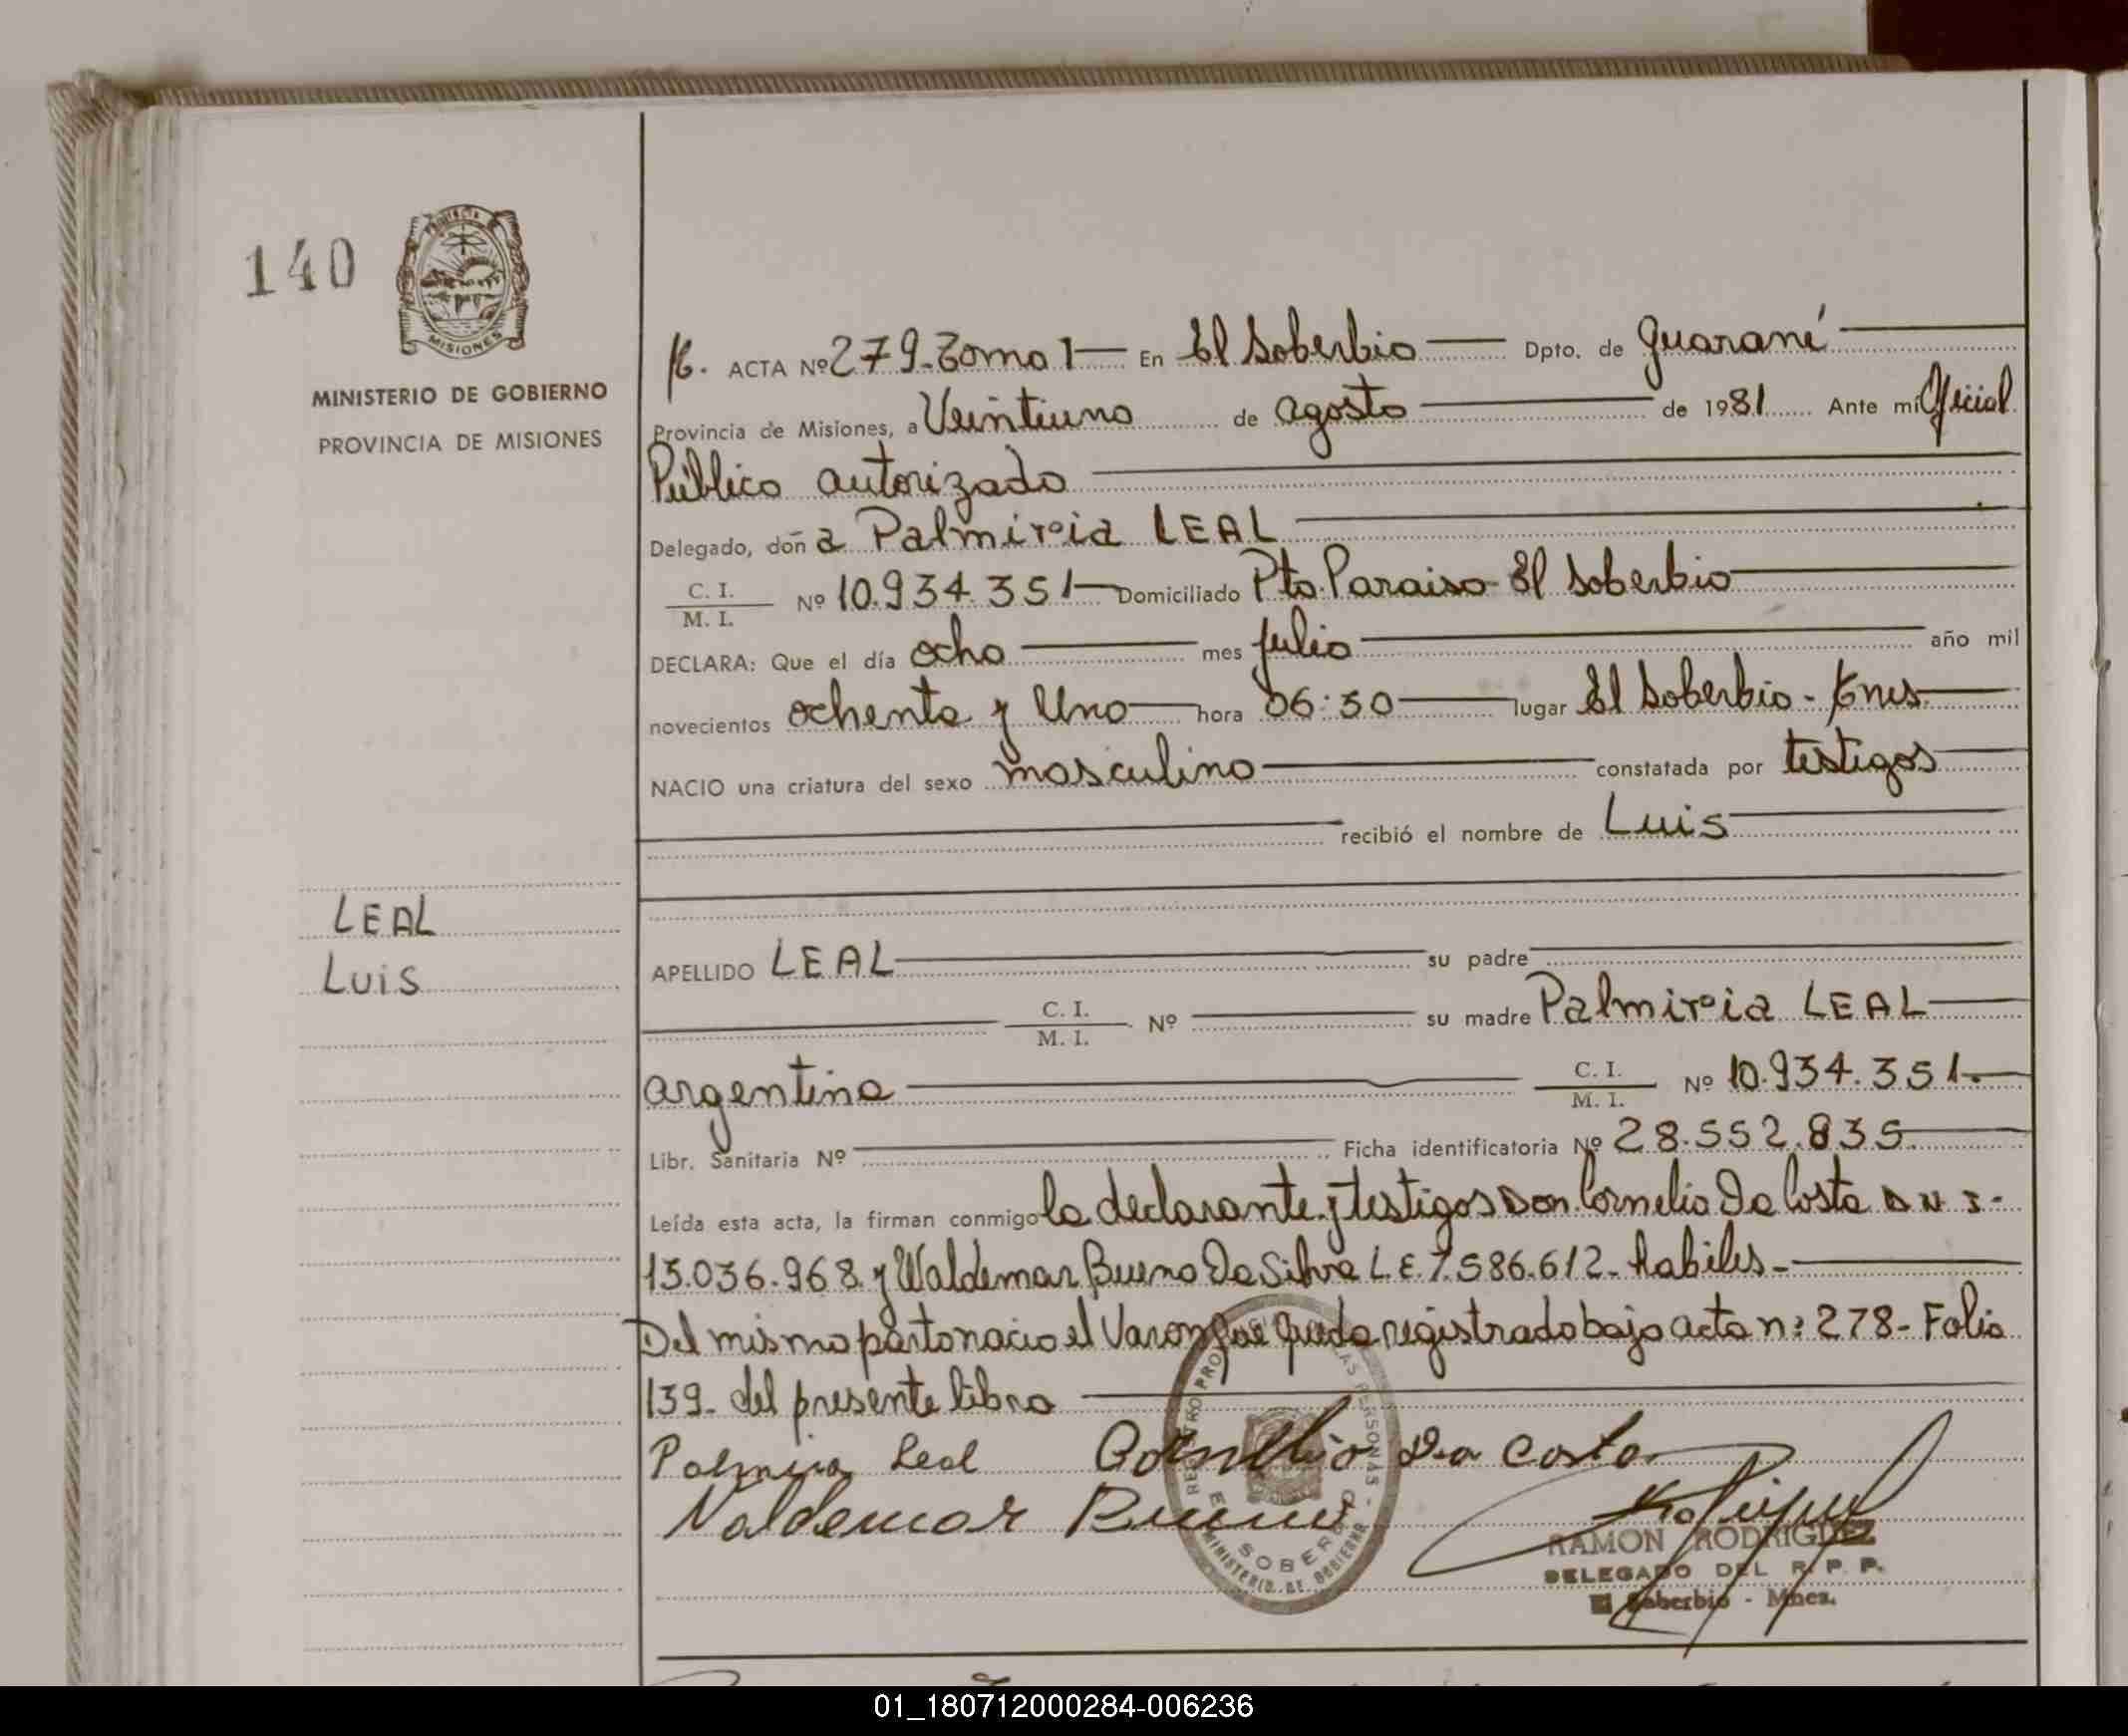 140
PROVINCIA
MISIONES
MINISTERIO DE GOBIERNO
PROVINCIA DE MISIONES
LEAL
Luis
ACTA Nº 279-Tomo 1 En El Soberbio Dpto. de Guaraní
Provincia de Misiones, a Veintiuno de agosto de 1981 Ante mí Oficial
Público autorizado
Delegado, doña Palmiria LEAL
C. I.
M. I.
Nº 10.934.351 Domiciliado Pto. Paraiso-El Soberbio
DECLARA: Que el día ocho mes julio año mil
novecientos ochenta y Uno hora 06:30 lugar El Soberbio -
NACIO una criatura del sexo masculino constatada por testigos
recibió el nombre de Luis
APELLIDO LEAL su padre
C. I.
M. I.
Nº su madre Palmiria LEAL
argentina C. I.
M. I.
Nº 10.934.351.-
Libr. Sanitaria Nº Ficha identificatoria Nº 28.552.835
Leída esta acta, la firman conmigo la declarante y testigos Don Cornelio Da Costa D N I -
13.036.968 y Waldemar Bueno Da Silva L.E. 7.586.612- habiles-
Del mismo parto nacio el Varon que queda registrado bajo acta n: 278- Folio
139- del presente libro
Palmiria Leal Cornelio Da Costa
Valdemar Bueno
REGISTRO PROVINCIAL DE LAS PERSONAS -
EL SOBERBIO
MINISTERIO DE GOBIERNO
RAMON RODRIGUEZ
DELEGADO DEL R. P. P.
El Soberbio - Mnes.
01_180712000284-006236